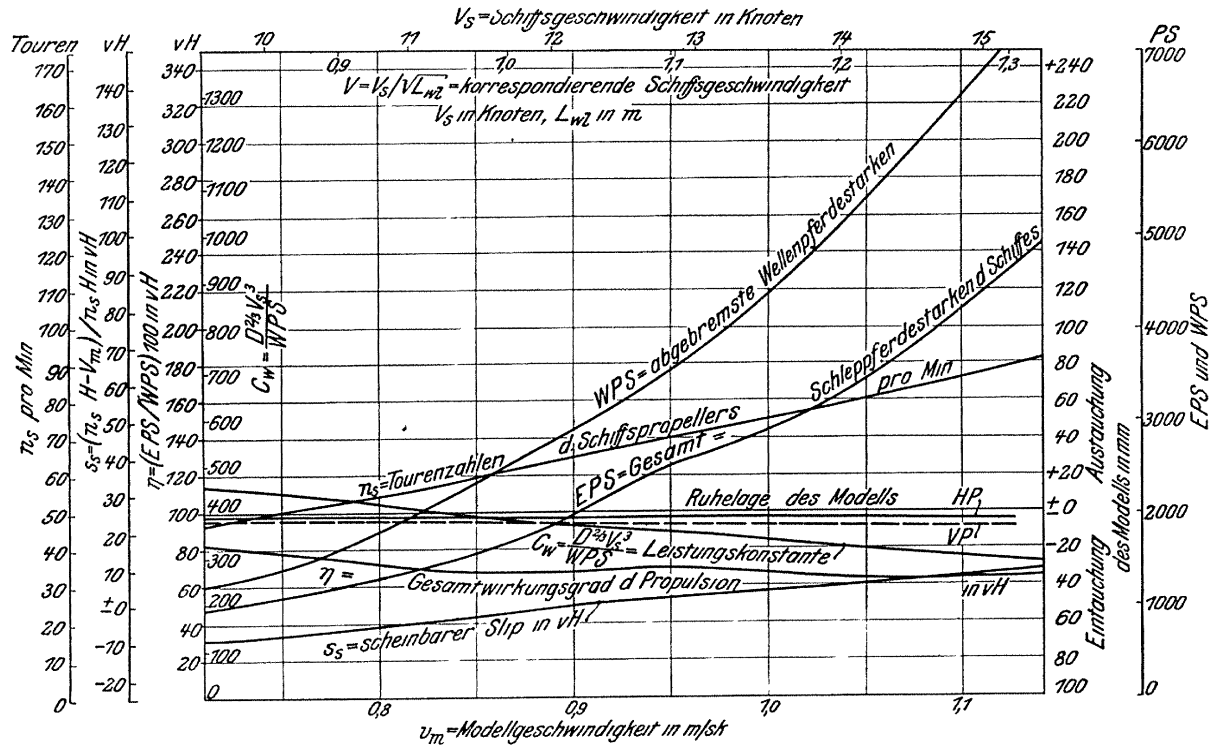 V_s=Schiffsgeschwindigkeit in Knoten
Touren vH vH 10 11 12 13 14 15 PS
0,9 1,0 1,1 1,2 1,3
V=V_s/√L_wl=korrespondierende Schiffsgeschwindigkeit
V_s in Knoten, L_wl in m
170
160
150
140
130
120
110
100
90
80
70
60
50
40
30
20
10
0
n_s pro Min
140
130
120
110
100
90
80
70
60
50
40
30
20
10
±0
-10
-20
s_s=(n_s H-V_m)/n_s H in vH
340
320
300
280
260
240
220
200
180
160
140
120
100
80
60
40
20
η=(EPS/WPS)100 in vH
1300
1200
1100
1000
900
800
700
600
500
400
300
200
100
0
C_w=D^2/3 V_s^3/WPS
WPS=abgebremste Wellenpferdestarken
EPS=Gesamt= Schleppferdestarken d Schiffes
n_s=Tourenzahlen d. Schiffspropellers pro Min
Ruhelage des Modells HP
VP
C_w=D^2/3 V_s^3/WPS=Leistungskonstante
η= Gesamtwirkungsgrad d Propulsion in vH
s_s=scheinbarer Slip in vH
+240
220
200
180
160
140
120
100
80
60
40
+20
±0
-20
40
60
80
100
Austauchung
Eintauchung
des Modells in mm
7000
6000
5000
4000
3000
2000
1000
0
EPS und WPS
0,8 0,9 1,0 1,1
v_m=Modellgeschwindigkeit in m/sk